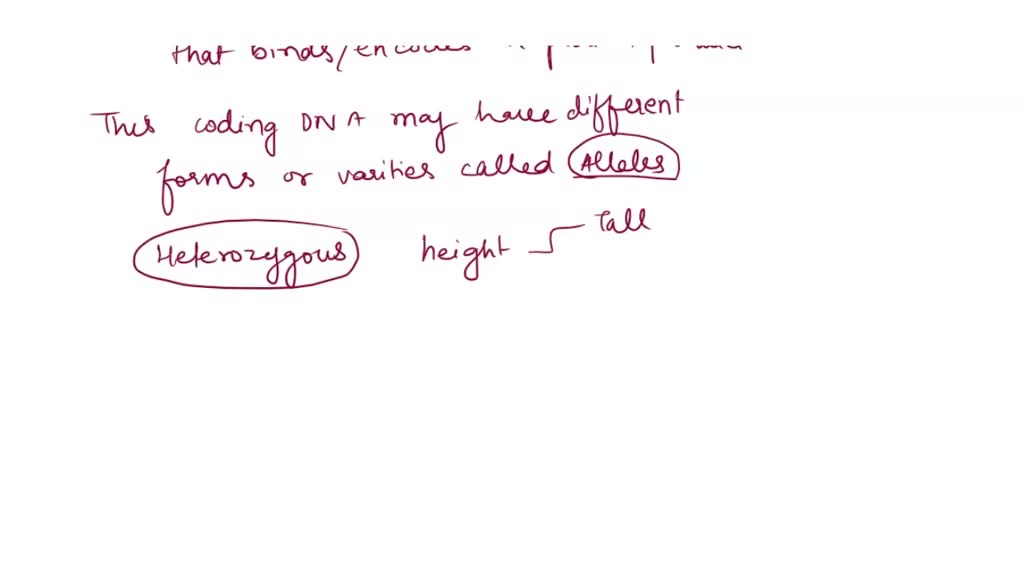 that binds/encodes
This coding DNA may have different
forms or varities called Alleles
Heterozygous height Tall